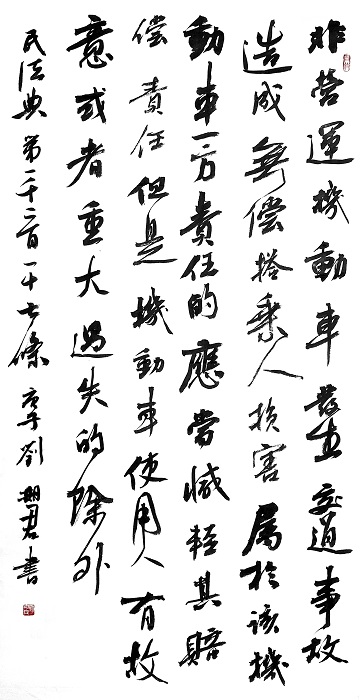 非營運機動車發生交通事故
造成無償搭乘人損害屬於該機
動車一方責任的應當減輕其賠
償責任但是機動車使用人有故
意或者重大過失的除外
民法典第一千二百一十七條 庚子劉朝君書